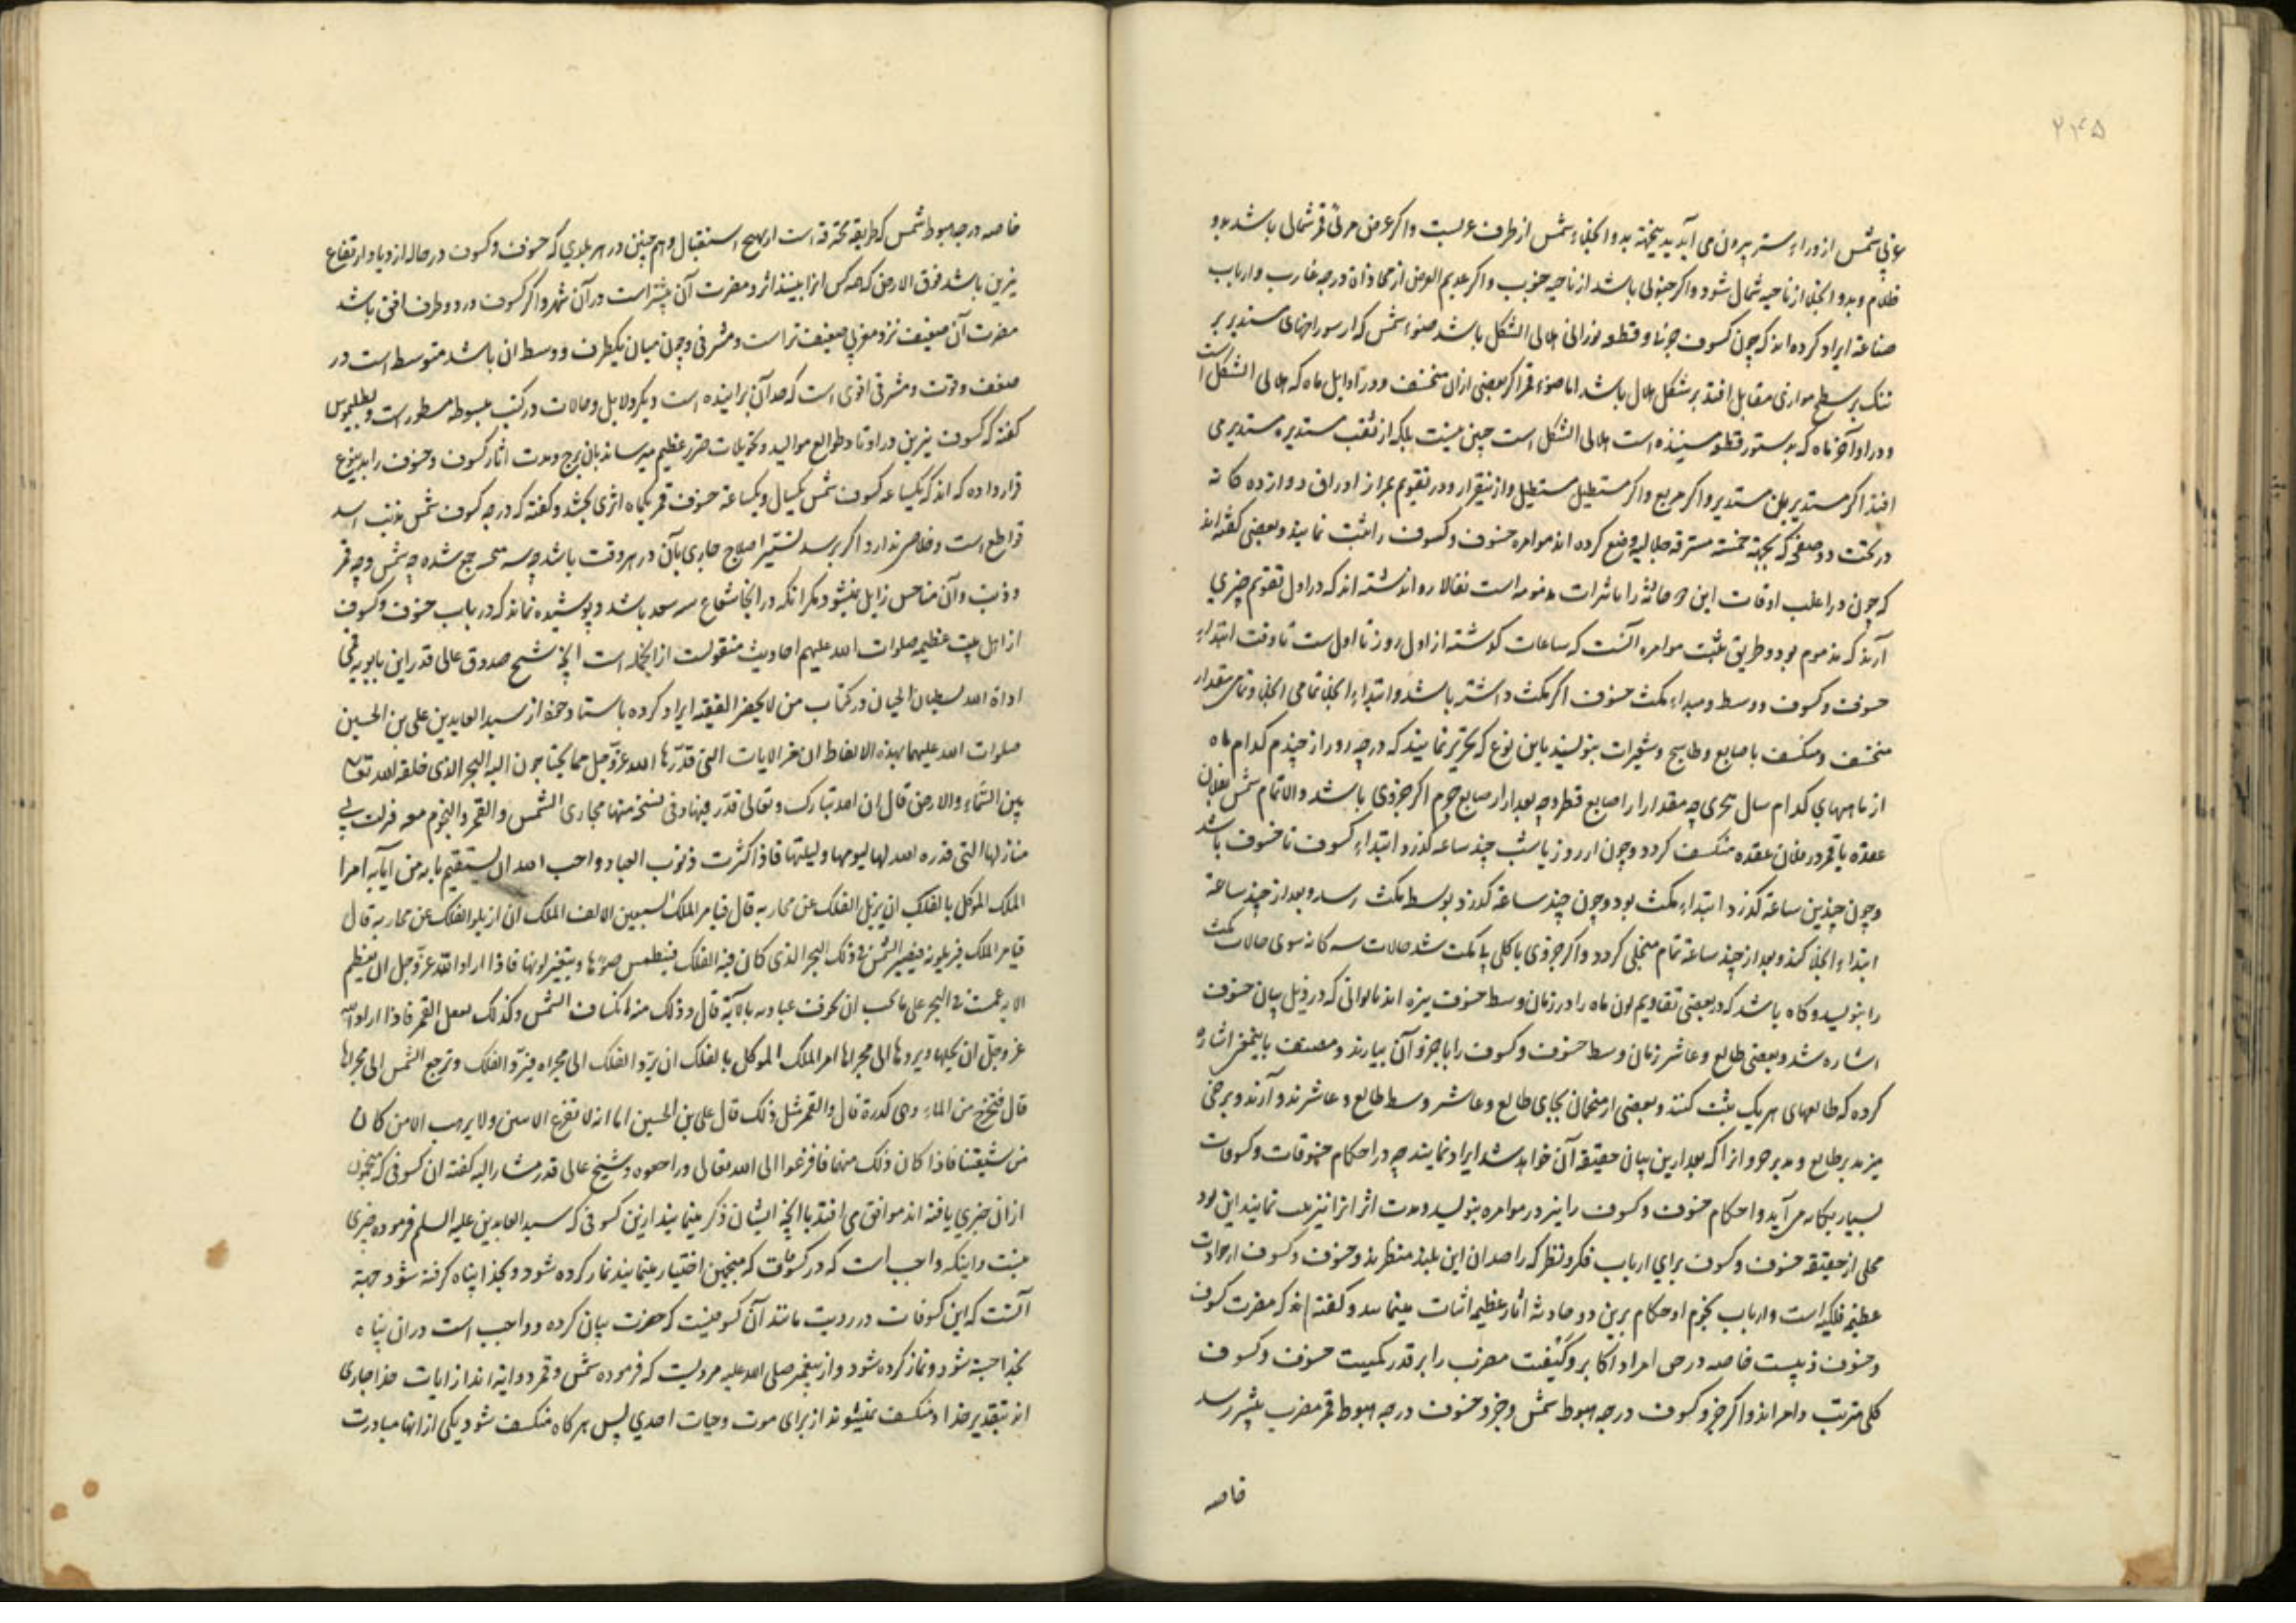 ۲۴۵
غربی شمس از وراء ستر بیرون می آید بدینجهة بدو انجلاء شمس از طرف غربست و اکر عرض مرئی قمر شمالی باشد بدو
ظلام و بدو انجلا از ناحیه شمال شود و اکر جنوبی باشد از ناحیه جنوب و اکر عدیم العرض از محاذاة درجه غارب و ارباب
صناعة ایراد کرده اند که چون کسوف جونا و قطعه نورانی هلالی الشکل باشد ضوء شمس که از سوراخهای مستدیر بر
تنک بر سطح موازی مقابل افتد بر شکل هلال باشد اما ضوء قمر اکر بعضی ازان منخسف و در اوایل ماه که هلالی الشکل است
و در اواخر ماه که بدستور قطعه مستنیره است هلالی الشکل است چنین نیست بلکه از ثقب مستدیره مستدیر می
افتد اکر مستدیر بان مستدیر و اکر مربع و اکر مستطیل مستطیل و ازینقرار و در تقویم بعد از اوراق دوازده کانه
در تحت دو صفحی که بجهة خمسه مسترقه جلالیه وضع کرده اند موامره خسوف و کسوف را ثبت نمایند و بعضی کفته اند
که چون در اغلب اوقات این حادثه را تاثیرات مذمومه است تفالا روا نداشته اند که در اول تقویم چیزی
آرند که مذموم بود و طریق ثبت موامره آنست که ساعات کذشته از اول روز تا اول ست تا وقت ابتداء
خسوف و کسوف و وسط و مبداء مکث خسوف اکر مکث داشته باشد و ابتداء انجلا تمامی انجلا و تمامی مقدار
منخسف و منکسف باصابع و طاسیج و شعیرات بنویسند باین نوع که تحریر نمایند که در چه روز از چندم کدام ماه
از ماههای کدام سال هجری چه مقدار از اصابع قطر و چه بعد از اصابع جرم اکر جزوی باشد و الا تمام شمس بفلان
عقده یا قمر در فلان عقده منکسف کردد و چون از روز یا شب چند ساعه کذرد ابتداء کسوف تا خسوف باشد
و چون چندین ساعة کذرد ابتداء مکث بود و چون چند ساعة کذرد بوسط مکث رسد و بعد از چند ساعة
ابتداء انجلا کند و بعد از چند ساعة تمام منجلی کردد و اکر جزوی یا کلی بی مکث شد حالات سه کانه سوی حالات مکث
را بنویسد و کاه باشد که در بعضی تقاویم لون ماه را در زمان وسط خسوف نیزه اند بالوانی که در ذیل بیان خسوف
اشاره شد و بعضی طالع و عاشر زمان وسط خسوف و کسوف را با جزو آن بیارند و مصنف باینمعنی اشاره
کرده که طالعهای هر یک ثبت کنند و بعضی از منجمان بجای طالع و عاشر وسط طالع و عاشر ندو آرند و برخی
نیز مدبر طالع و مدبر جزو انرا که بعد ازین بیان حقیقة آن خواهد شد ایراد نمایند چه در احکام خسوفات و کسوفات
بسیار بکار می آید و احکام خسوف و کسوف را نیز در موامره بنویسد و مدت اثر انرا نیز ثبت نمایند این بود
مجلی از حقیقة خسوف و کسوف برای ارباب فکر و نظر که راصدان این بلند منظرند و خسوف و کسوف از حوادث
عظیمه فلکیه است و ارباب نجوم احکام برین دو حادثه آثار عظیمه اثبات مینمایند و کفته اند که مضرت کسوف
و خسوف ذنبیست خاصه در حق امرا و اکابر و کیفیت مضرت را بر قدر کمیت خسوف و کسوف
کلی مترتب داده اند و اکر جزو کسوف در درجه هبوط شمس و جزو خسوف در درجه هبوط قمر مضرب بیشتر رسد
خاصه
خاصه درجه هبوط شمس که طریقه محترقه است از هیچ استقبال و هم چنین در هر بلدی که خسوف و کسوف در حاله ازدیاد ارتفاع
نیرین باشد فوق الارض که همه کس انرا بینند اثر و مضرت آن بیشتر است در آن شهر و اکر کسوف در دو طرف افق باشد
مضرت آن ضعیف نزد مغربی ضعیف تر است و مشرقی و چون میان یکطرف و وسط ان باشد متوسط است در
ضعف و قوت و مشرقی اقوی است که ضد آن براینده است و دیکر دلایل و حالات در کتب مبسوطه مسطور است و بطلمیوس
کفته که کسوف نیرین در اوتاد طوالع موالید و تحویلات ضرر عظیم میرساند بان برج و مدت آثار کسوف و خسوف را بدینوع
قرار داده که اند که یکساعه کسوف شمس یکسال و یکساعة خسوف قمر یکماه اثری بخشد و کفته که درجه کسوف شمس بذنب اسد
قواطع است و خلاص ندارد و اکر برسد تسییر اصلاح جاری بآن در هر وقت باشد چه سه نحس جمع شده چه شمس و چه قمر
و ذنب و آن مناحس زایل نمیشود مکر انکه در انجا شعاع سه سعد باشد و پوشیده نماند که در باب خسوف و کسوف
از اهل بیت عظیمه صلوات الله علیهم احادیث منقولست از انجمله است آنچه شیخ صدوق عالی قدر ابن بابویه قمی
اداة الله لسطان الجنان در کتاب من لا یحضر الفقیه ایراد کرده باسناد خود از سید العابدین علی بن الحسین
صلوات الله علیهما بهذه الالفاظ ان من الایات التی قدّرها الله عزّ وجل مما یحتاجون الیه البحر الذی خلقه الله تعالی
بین السّماء والارض قال ان الله تبارک و تعالی قدّر فیها و فی نسخة منها مجاری الشمس والقمر والنجوم معه فزلت فی
منازلها التی قدره الله لها لیومها و لیلتها فاذا کثرت ذنوب العباد و احب الله ان یستعتبهم بآیه من آیاته امر
الملک الموکل بالفلک ان یزیل الفلک عن مجاریه قال فیامر الملک السبعین الالف الملک ان ازیلوا الفلک عن مجاریه قال
فیامر الملک فیزیلونه فیصیر الشمس فی ذلک البحر الذی کان فیه الفلک فینطمس ضوءها و یتغیر لونها فاذا اراد الله عزّ وجل ان یعظم
الایه غمست فی البحر علی ما یحب ان یخوف عباده بالآیة قال و ذلک منذ انکساف الشمس و کذلک یفعل القمر فاذا اراد الله
عزّ وجلّ ان یجلیها و یردها الی مجراها امر الملک الموکل بالفلک ان یردّ الفلک الی مجراه فیردّ الفلک و ترجع الشمس الی مجراها
قال فتخرج من الماء و هی کدرة قال والقمر مثل ذلک قال علی بن الحسین اما انه لا یفزع الایتین ولا یرهب الا من کان
من شیعتنا فاذا کان ذلک منهما فافزعوا الی الله تعالی و راجعوه و شیخ عالی قدر مشار الیه کفته ان کسوفی که منجمون
ازان خبری یافته اند موافق می افتد با آنچه ایشان ذکر مینمایند ازین کسوفی که سید العابدین علیه السلم فرموده چیزی
نیست و اینکه واجب است که در کسوفات که منجمین اختیار مینمایند نماز کرده شود و بخدا پناه کرفته شود جهة
آنست که این کسوفات در رویت مانند آن کسوفیست که حضرت بیان کرده و واجب است دران پناه
بخدا جسته شود و نماز کرده شود و از پیغمبر صلی الله علیه مرویست که فرموده شمس و قمر دو ایة اند از ایات خدا جاری
اند بتقدیر خدا و منکسف نمیشوند از برای موت و حیات احدی پس هر کاه منکسف شود یکی از انها مبادرت